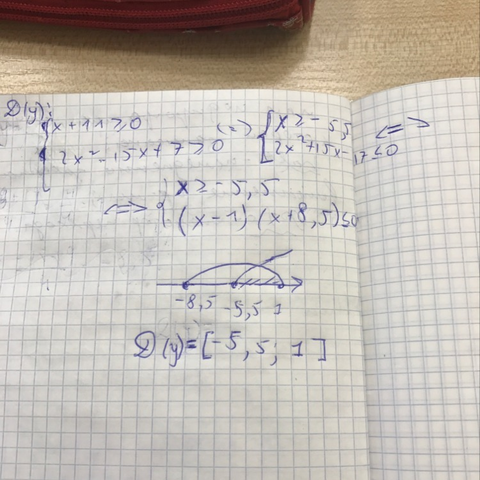 D(y):
{x+11≥0 <=> {x≥-5,5 <=>
{2x²-15x+7≥0 {2x²+15x-17≤0
<=> {x≥-5,5
{(x-1)(x+8,5)≤0
-8,5 -5,5 1
D(y)=[-5,5; 1]